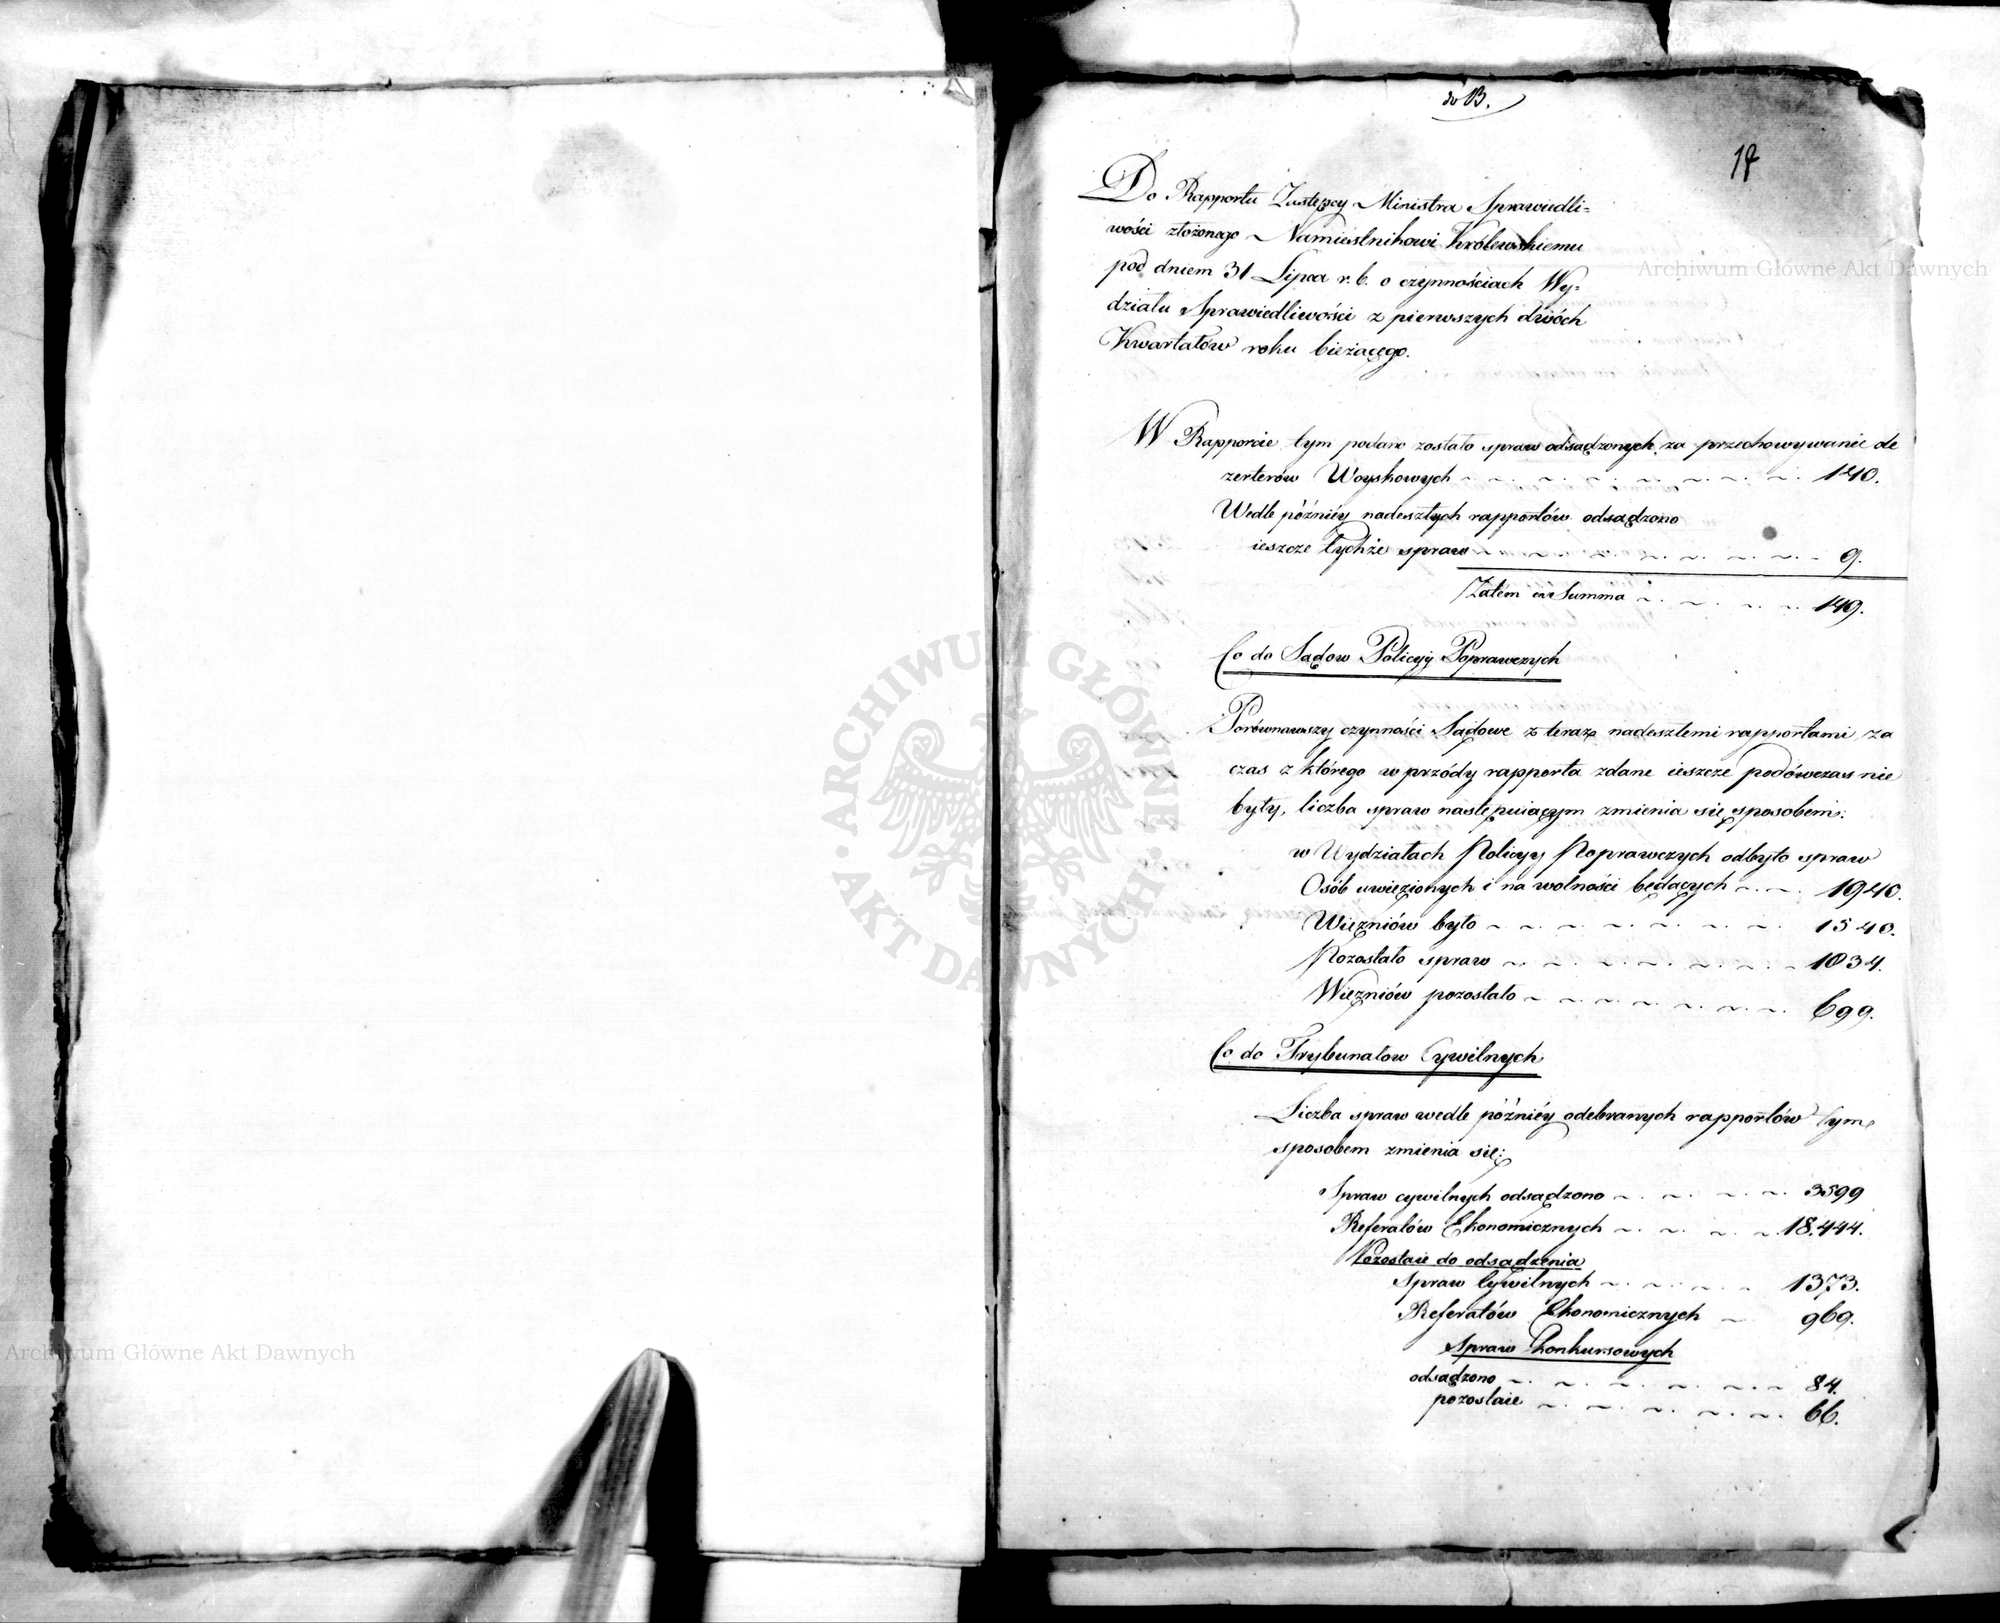 do B.
17
Do Rapportu Zastępcy Ministra Sprawiedli=
wości złożonego Namiestnikowi Królewskiemu
pod dniem 31 Lipca r. b. o czynnościach Wy=
działu Sprawiedliwości z pierwszych dwóch
Kwartałów roku bieżącego.
Archiwum Główne Akt Dawnych
W Rapporcie tym podano zostało spraw odsądzonych za przechowywanie de
zerterów Woyskowych 140.
Wedle pòźniéy nadeszłych rapportów odsądzono
ieszcze tychże spraw 9.
Zatém in Summa 149.
Co do Sądow Policyy Poprawczych
Porównawszy czynności Sądowe z teraz nadeszłemi rapportami, za
czas z którego w przódy rapporta zdane ieszcze podówczas nie
były, liczba spraw następuiącym zmienia się sposobem:
w Wydziałach Policyy Poprawczych odbyto spraw
Osób uwięzionych i na wolności będących 1940.
Więzniów było 1540.
Pozostało spraw 1034.
Więzniów pozostało 699.
Co do Trybunałow Cywilnych
Liczba spraw wedle pòźniéy odebranych rapportów tym
sposobem zmienia się:
Spraw cywilnych odsądzono 3599
Referatów Ekonomicznych 18.444.
Pozostaie do odsądzenia
Spraw Cywilnych 1373.
Referatów Ekonomicznych 969.
Spraw Konkursowych
odsądzono 84.
pozostaie 66.
ARCHIWUM GŁÓWNE AKT DAWNYCH
Archiwum Główne Akt Dawnych